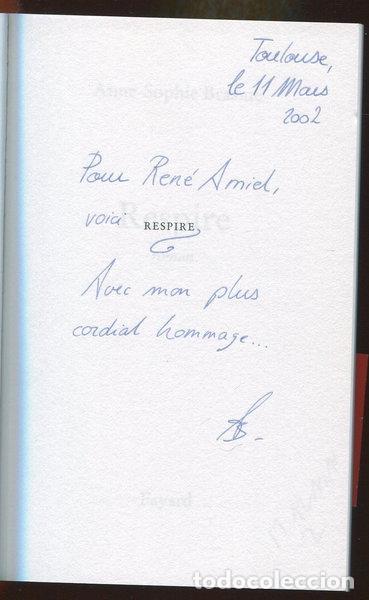 Toulouse,
le 11 Mars
2002
Anne-Sophie
Pour René Amiel,
voici RESPIRE,
Respire
roman
Avec mon plus
cordial hommage...
AS-
Fayard
todocoleccion.net